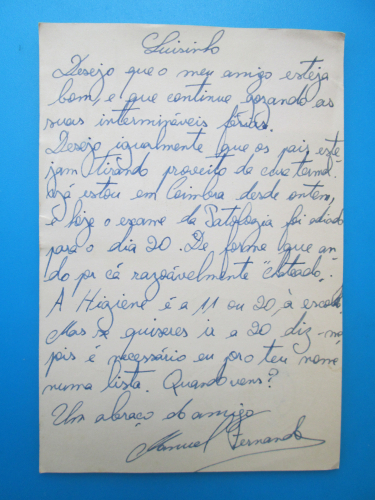 Luisinho
Desejo que o meu amigo esteja
bom, e que continue gosando as
suas intermináveis férias.
Desejo igualmente que os pais este
jam tirando proveito da cura termal.
cá estou em Coimbra desde ontem,
e hoje o exame da Patologia foi adiado
para o dia 20. De forma que an
do por cá razoávelmente "chateado".
A Higiene é a 11 ou 20, à escolha
Mas se quiseres ir a 20 diz-mo
pois é necessário eu pro teu nome
numa lista. Quando vens?
Um abraço do amigo
Manuel Fernando